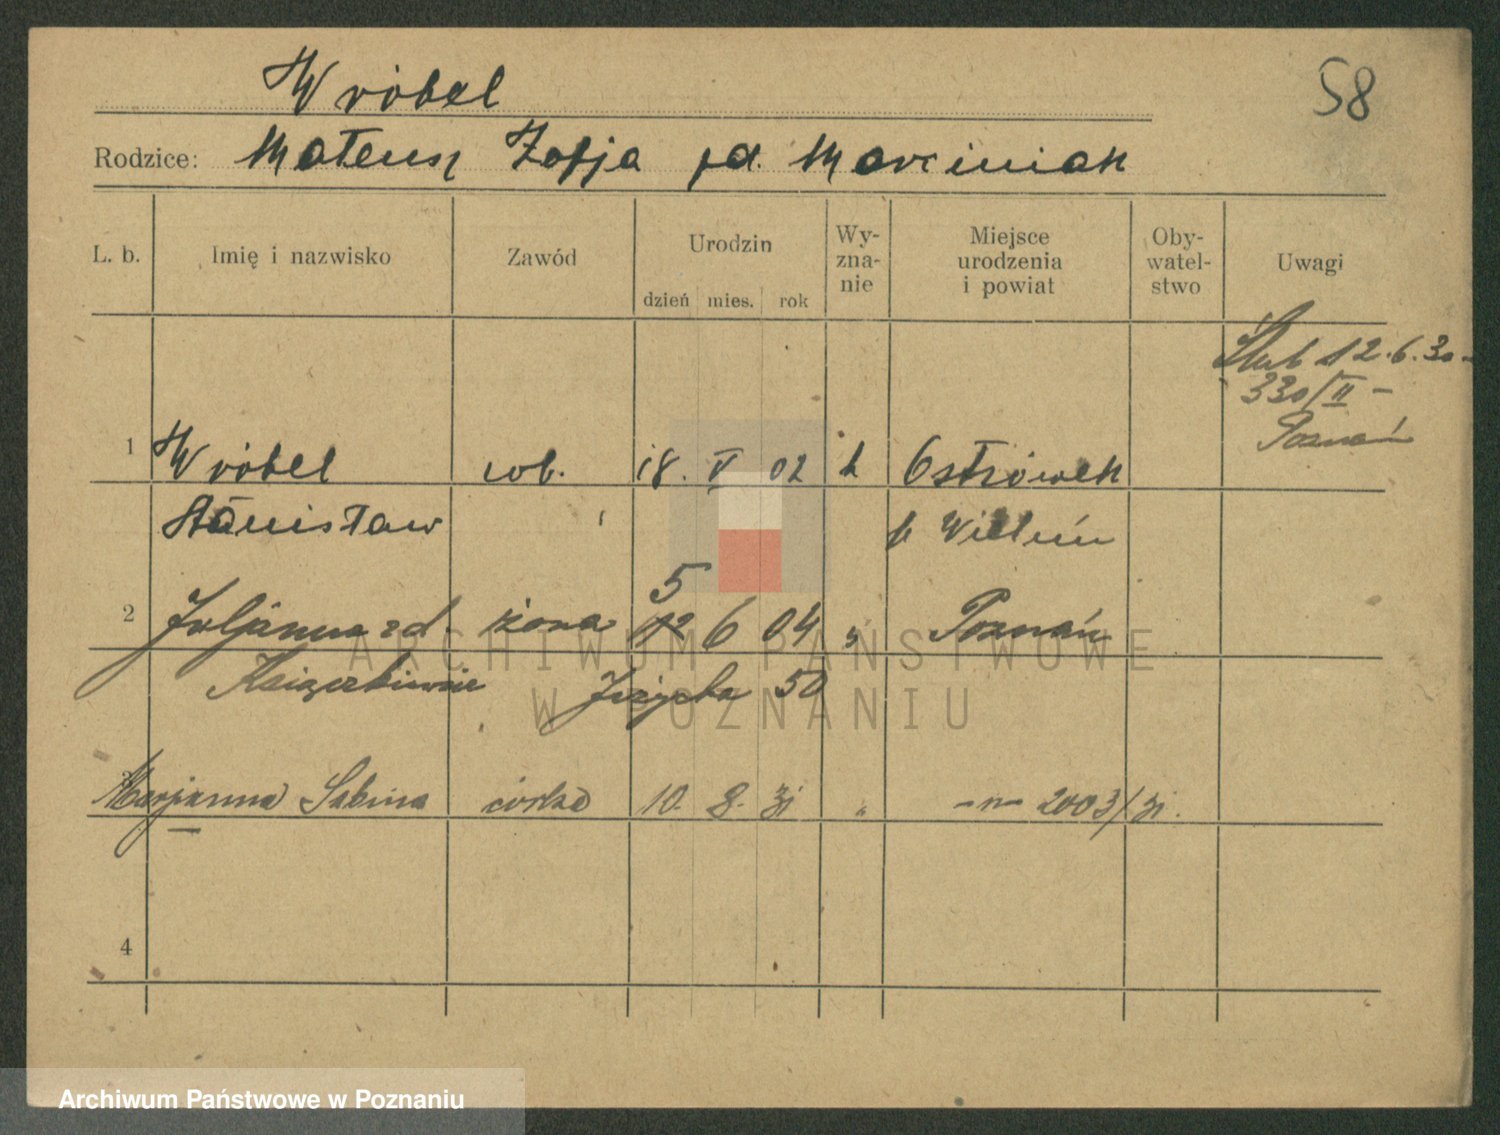 58
Wróbel
Rodzice: Mateusz Zofja zd. Marciniak
L. b. Imię i nazwisko Zawód Urodzin dzień mies. rok Wy-zna-nie Miejsce urodzenia i powiat Oby-watel-stwo Uwagi
Ślub 12.6.30 -
330/II -
Poznań
1 Wróbel rob. 18. V 02 k Ostrówek
Stanisław p Wieluń
5
2 Juljanna zd. żona 12 6 04 " Poznań
50
3 Marjanna Sabina córka 10. 8. 31 " -"- 2003/31.
4
ARCHIWUM PAŃSTWOWE
W POZNANIU
Archiwum Państwowe w Poznaniu